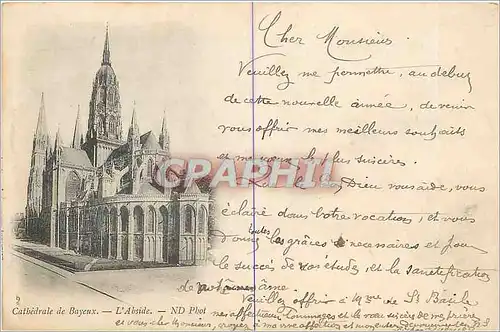 Cher Monsieur.
Veuillez me permettre, au début
de cette nouvelle année, de venir
vous offrir mes meilleurs souhaits
et mes voeux les plus sincères.
CPAPHIL.com
Dieu vous aide, vous
éclaire dans votre vocation, et vous
donne toutes les grâces nécessaires et pour
le succès de vos études, et la sanctification
de votre âme
Veuillez offrir à Mme de St Basile
mes affectueux hommages et les voeux sincères de
et vous cher Monsieur, croyez à ma vive affection et
Cathédrale de Bayeux. — L'Abside. — ND Phot